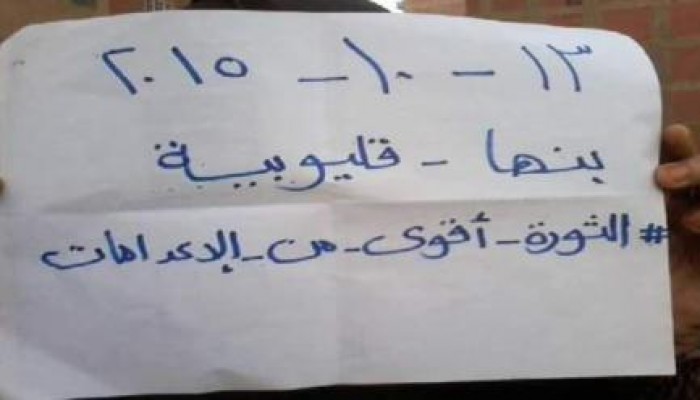 ١٣ - ١٠ - ٢٠١٥
بنها - قليوبية
#الثورة-أقوى-من-الإعدامات